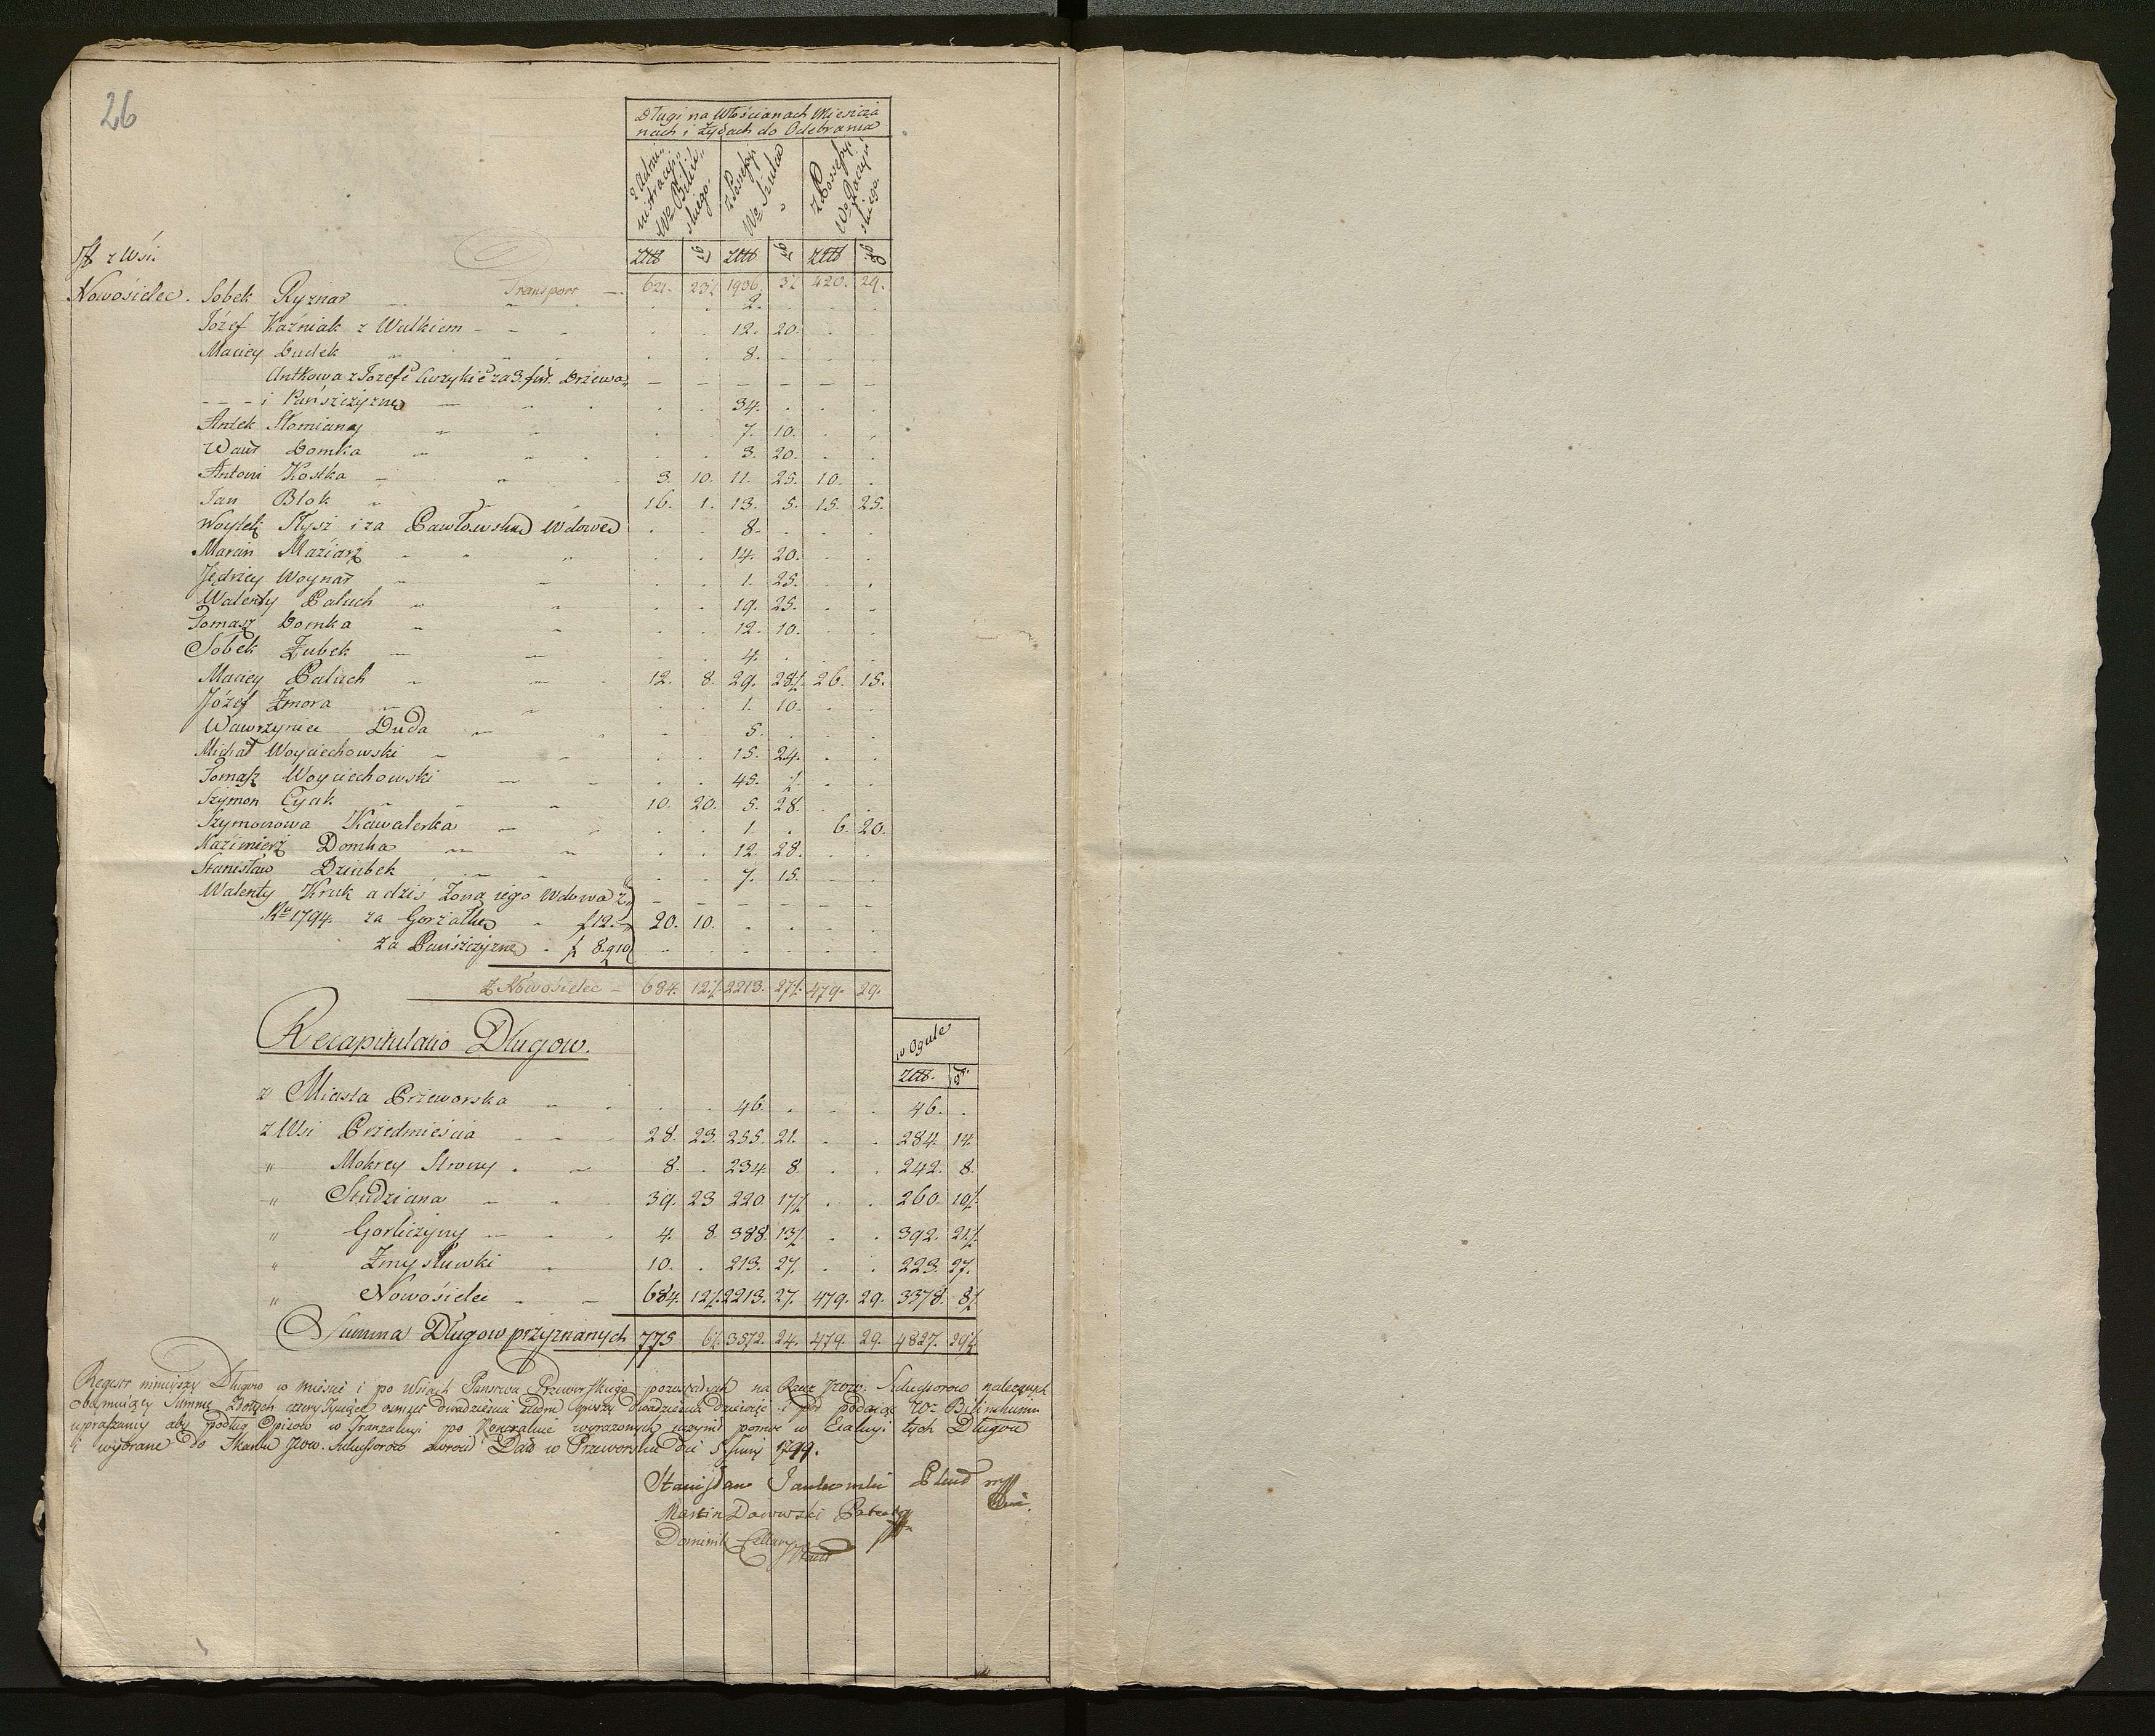 26
Długi na Włościanach Mieszcza
nach i Żydach do Odebrania
z Admi„
nistracyi
We Biliń„
skiego.
z Possessyi
We Szulca
z Possessyi
We Raczyń
skiego.
if z Wsi Złtt gr Złtt gr Złtt gr
Transport — 621. 23½ 1936. 3½ 420. 29.
Nowosielec. Sobek Ryznar . . 2. . . .
Józef Kaźniak z Walkiem - - - . . 12. 20. . .
Maciey Dudek . . 8. . . .
Antkowa z za 3. fur. Drzewa„ - - - - - -
- - - i Pańszczyznę — . . 34. . . .
Antek Słomiany . . 7. 10. . .
Wawr Domka . . 3. 20. . .
Antoni Kostka - 3. 10. 11. 25. 10. .
Jan Blok 16. 1. 13. 5. 15. 25.
Woytek Stysz i za Pawłowską Wdowę . . 8. . . .
Marcin Maziarz . . 14. 20. . .
Jędrzey Woynar . . 1. 25. . .
Walenty Paluch . . 19. 25. . .
Tomasz Domka . . 12. 10. . .
Sobek Zubek — — . . 4. . . .
Maciey Paluch 12. 8. 29. 28½. 26. 15.
Józef Zmora . . 1. 10. . .
Wawrzyniec Duda . . 5. . . .
Michał Woyciechowski . . 15. 24. . .
Tomasz Woyciechowski . . 45. ½. . .
Szymon Cyak 10. 20. 5. 28. . .
Szymonowa Kawalerka . . 1. . 6. 20.
Kaźimierz Domka . . 12. 28. . .
Stanisław Dziubek . . 7. 15. . .
Walenty Kruk a dziś Żona iego Wdowa z - - - - - -
Ru 1794. za Gorzałkę - f 12.- 20. 10. . . . .
za Pańszczyznę . f 8. g 10 - - - - - -
z Nowosielec — 684. 12½. 2213. 27½. 479. 29.
Recapitulatio Długow.
w Ogule
Złtt. gr.
z Miasta Przeworska . . 46. . . . 46. .
z Wsi Przedmieścia 28. 23. 255. 21. . . 284. 14.
„ Mokrey Strony . 8. . 234. 8. . . 242. 8.
„ Studziana 39. 23 220. 17½ . . 260. 10½.
„ Gorliczyny 4. 8. 388. 13½. . . 392. 21½.
„ Zmysłuwki 10. . 213. 27. . . 223. 27.
„ Nowosielec 684. 12½. 2213. 27. 479. 29. 3378. 8½
Summa Długow przyznanych 775 6½. 3572. 24. 479. 29. 4827. 29½.
Regestr ninieyszy Długow w mieście i po Wsiach Państwa Przeworskiego pozostałych na Rzecz Jzow. Sukcessorow należących
obeymuiący Summę Złotych cztery Tysiące osmset dwadzieścia siedm groszy dwadzieścia dziewięć i pół podaiąc We Bilińskiemu
upraszamy aby podług Opisow w Tranzakcyi po wyrazonych uczynił pomoc w tych Długow
i wybrane do Skarbu Jzow. Sukcessorow zwrocił Dać w Przeworsku die 5 Junij 1799.
Stanisław Jankowski mpp
Marcin Dowski
Dominik